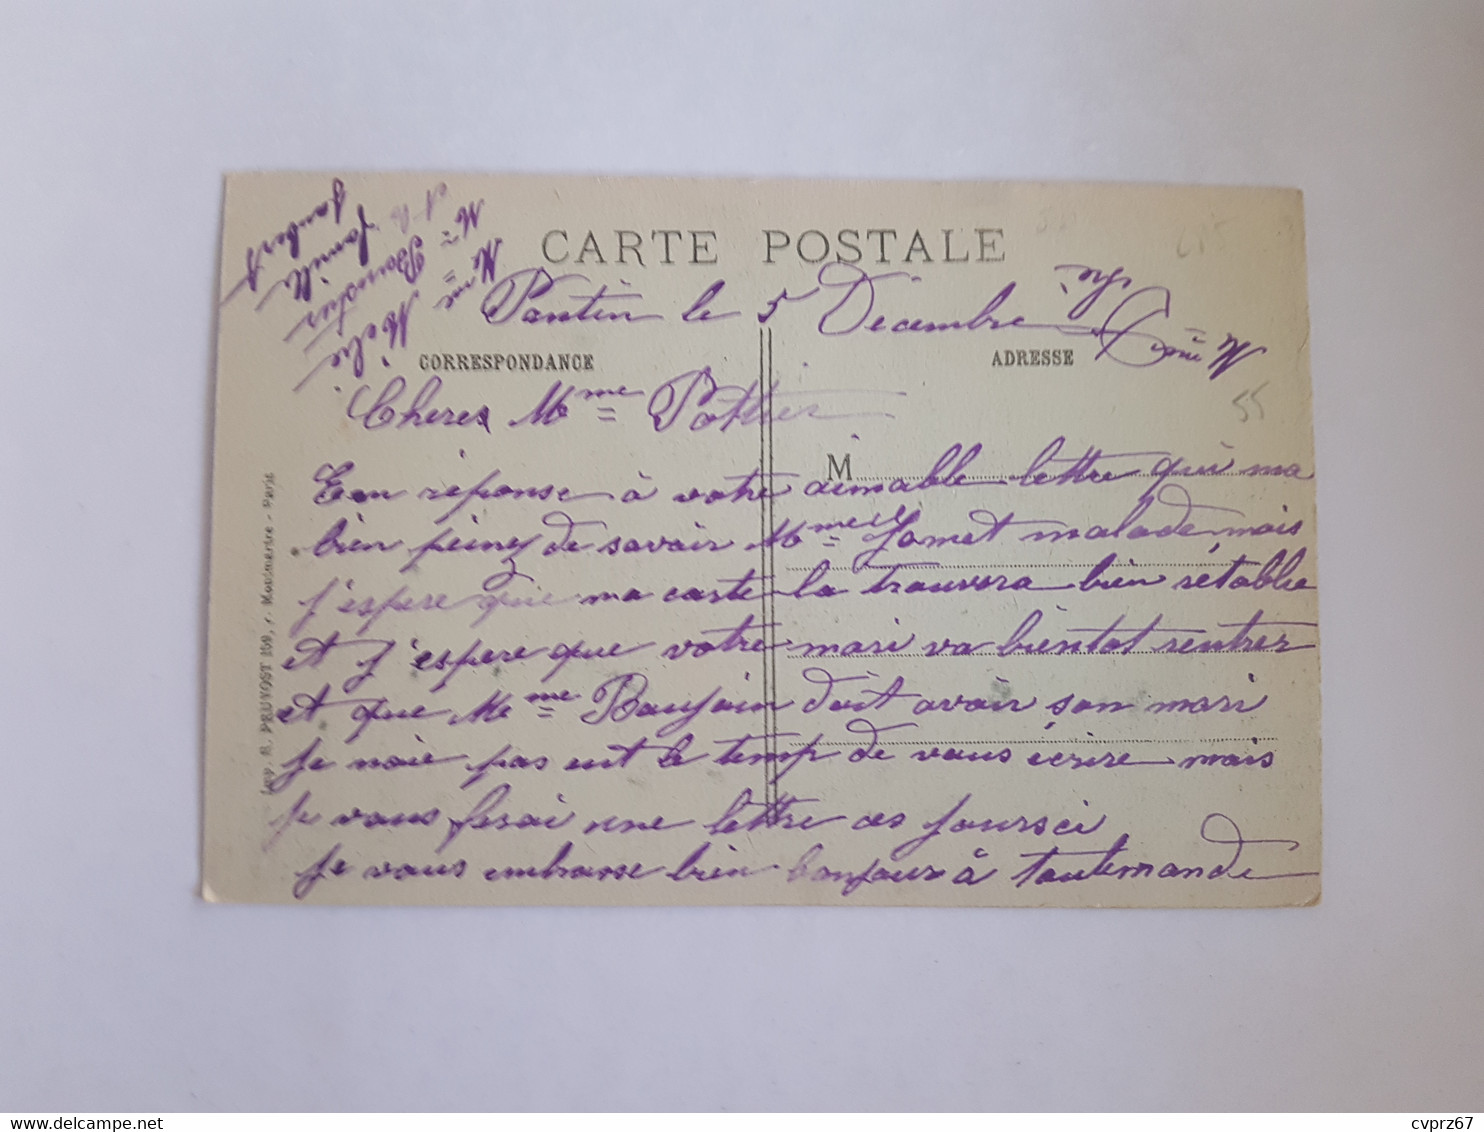 CARTE POSTALE
Pantin le 5 Décembre
CORRESPONDANCE
ADRESSE
Cheres Mme Pottier
M
En réponse à votre aimable lettre qui ma
bien peiney de savoir Mmelle Jamet malade mais
j'espere que ma carte la trouvera bien rétablie
et j'espere que votre mari va bientot rentrer
et que Mme Baujoin doit avoir son mari
je naie pas eut le temp de vous écrire mais
je vous ferai une lettre ces joursci
je vous embrasse bien bonjour à toutemonde
Mme Miché
Mme Boucher
Famille
Joubert
Mme
55
Imp. R. PRUVOST 159, r. Montmartre - Paris
www.delcampe.net
cvprz67